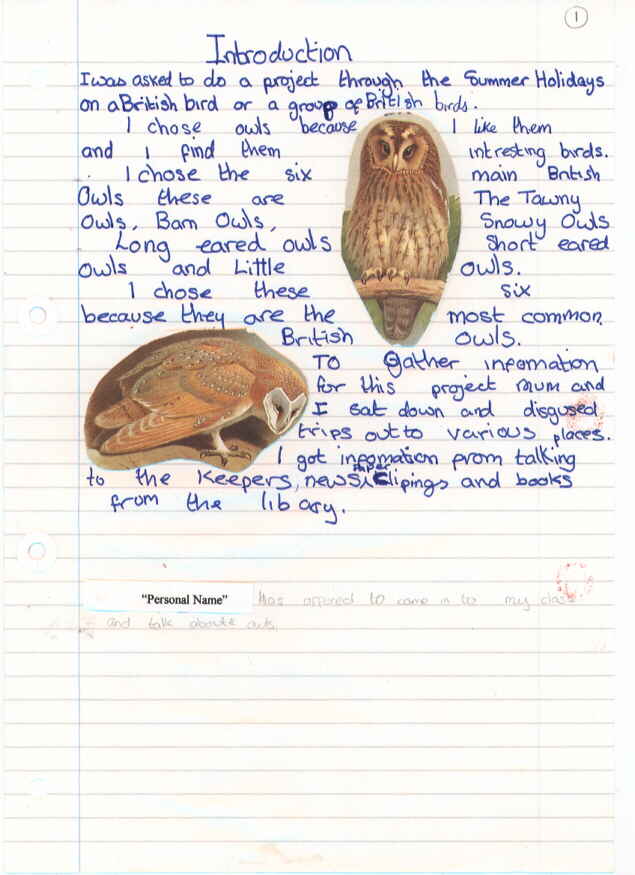 1
Introduction
I was asked to do a project through the Summer Holidays
on a British bird or a group of British birds.
I chose owls because I like them
and I find them intresting birds.
I chose the six main British
Owls these are The Tawny
Owls, Barn Owls, Snowy Owls
Long eared owls Short eared
Owls and Little Owls.
I chose these six
because they are the most common
British Owls.
To Gather infomation
for this project mum and
I sat down and disgused
trips out to various places.
I got infomation from talking
to the Keepers, news paper clipings and books
from the library.
"Personal Name" Has offered to come in to my class
and talk aboute owls